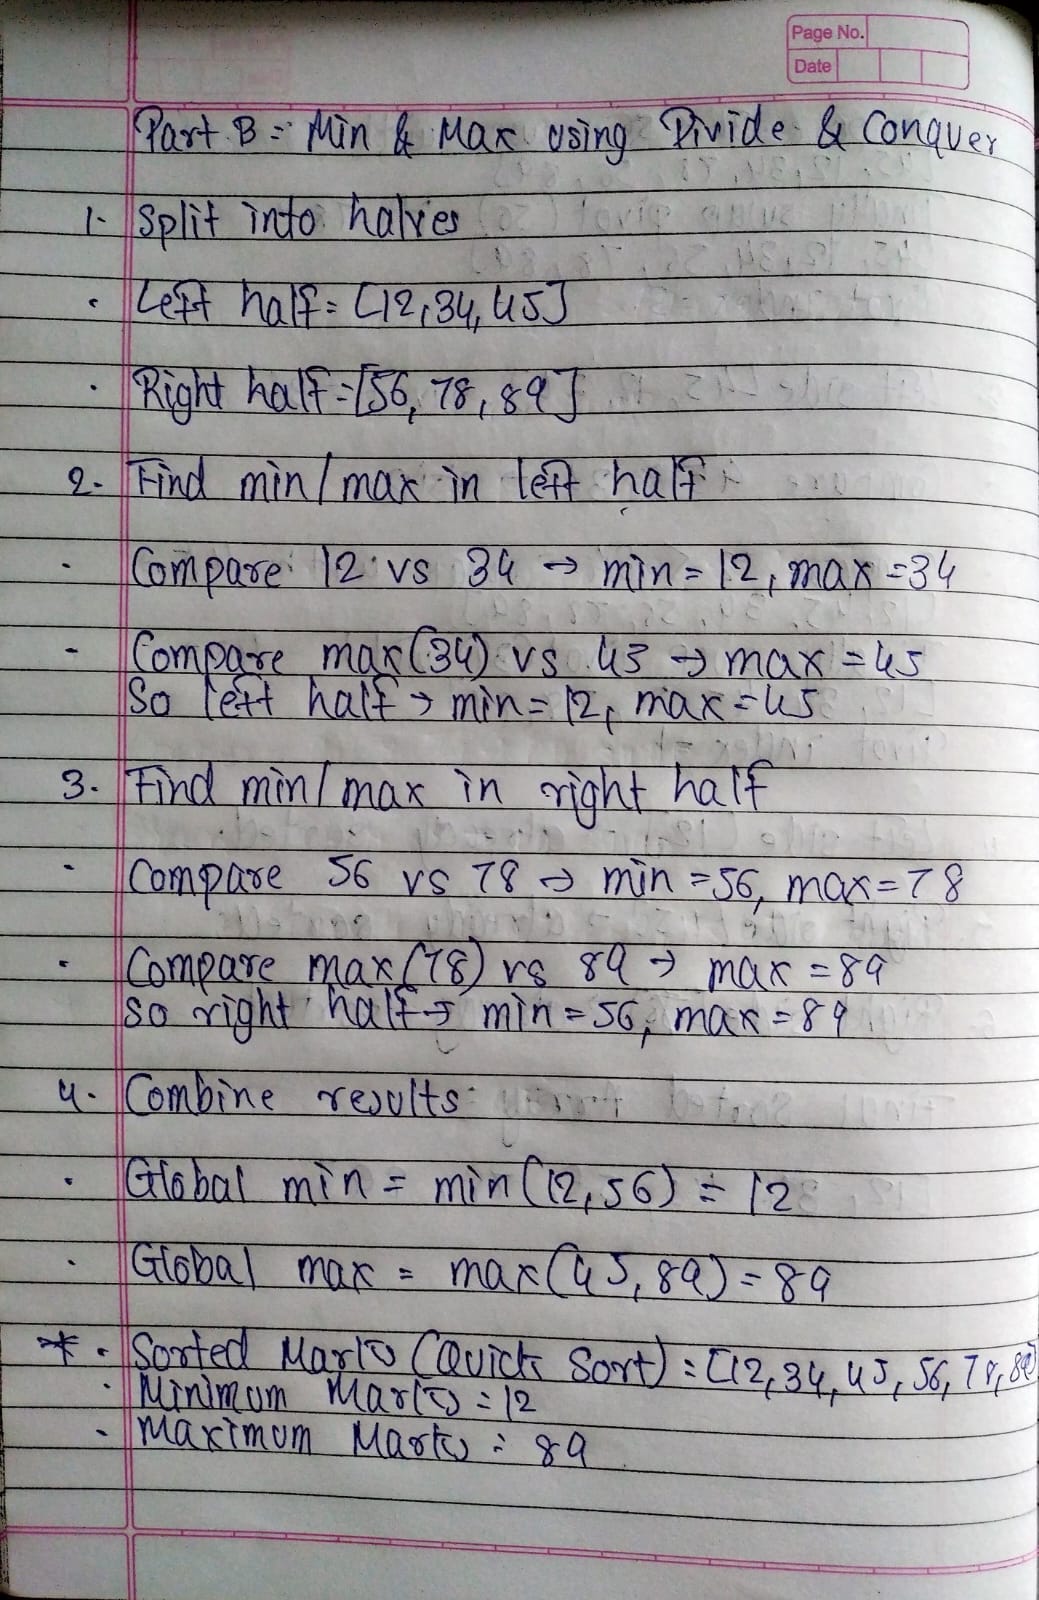 Page No.
Date
Part B = Min & Max using Divide & Conquer
1. Split into halves
. Left half = [12,34,45]
. Right half = [56, 78, 89]
2. Find min/max in left half
. Compare 12 vs 34 → min = 12, max = 34
- Compare max(34) vs 45 → max = 45
So left half → min = 12, max = 45
3. Find min/max in right half
. Compare 56 vs 78 → min = 56, max = 78
. Compare max(78) vs 89 → max = 89
so right half → min = 56, max = 89
4. Combine results
. Global min = min(12,56) = 12
. Global max = max(45,89) = 89
* . Sorted Marks (Quick Sort) = [12,34,45,56,78,89]
. Minimum Marks = 12
. Maximum Marks = 89